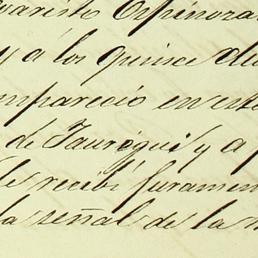 varisto Espinoza
y á los quince dia
mpareció en este
de Jauregui y a p
le recibí juramen
la señal de la